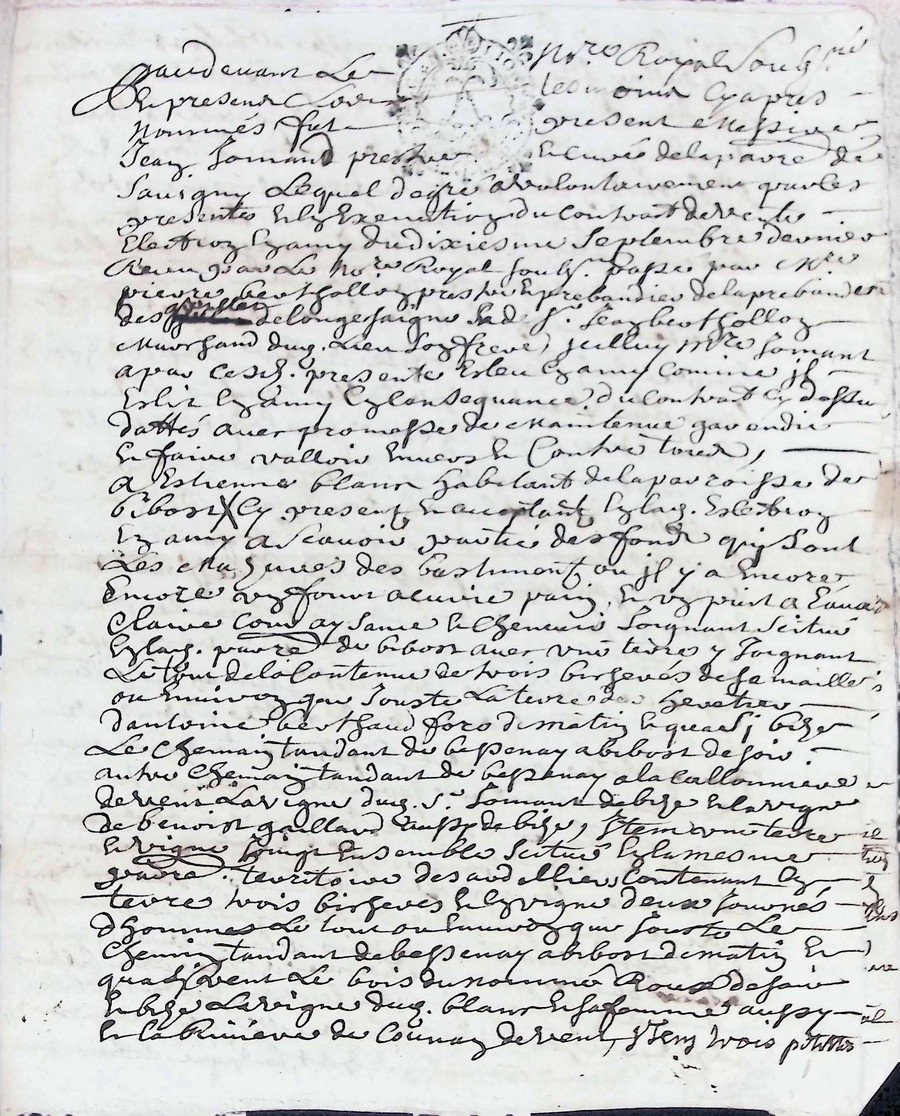 Pardevant Le no.re Royal Soubs.né
Et presens Les tesmoins Cy apres
Nommés fut present Messire
Jean Jomand prestre Et curé de la parre de
Savigny Lequel de gré a volontairement par Les
presentes En Exemution du Contrait de vente
Eslection En amy du dixiesme Septembre dernier
Receu par Le No.re Royal soubs.né passé par M.re
pierre berthollon prestre Et prebandier de la prebande
des de longesaigne Sr. Jean berthollon
Marchand dud. Lieu son frere, Jcelluy M.re Jomant
a par cesd. presentes Esleu En amy comme jl
Eslit En amy En Consequance du Contrait Cy dessus
dattés avec promesse de Maintenue garendie
Et faire valloir Envers Et Contre tous,
A Estienne blanc habitant de la parroisse de
bibost Cy present Et acceptant Lad. Eslection
En amy a Scavoir partie des fonds qui sont
Les Mazures des bastiment ou jl y a Encore
Encore un four a cuire pain, Et un puit a Eau
Claire Cour aysance Et Chenevier Joignant Scitué
En lad. parre de bibost avec une terre y Joignant
Le tout de la Contenue de trois bicherés de semailles
ou Environ que Jouste La terre des heretiers
d'antoine berthaud fors de matin Et quasi bize
Le Chemain tandant de bessenay a bibost de soir
autre Chemain tandant de bessenay a la Callonniere
de vent La vigne dud. Sr. Jomant de bize Et la vigne
de benoist gaillard aussy de bize, Jtem une terre
Et vigne Joint Ensemble Scitué En la mesme
parre territoire des Contenant En
terre trois bicherés Et En vigne deux Journés
d'hommes Le tout ou Environ que Jouste Le
Chemin tandant de bessenay a bibost de matin Et
quasi vent Le bois du nommé Roux de soir
Et bize La vigne dud. blanc Et sa femme aussy
Et la Riviere de Cosnay de vent, Jtem trois petittes